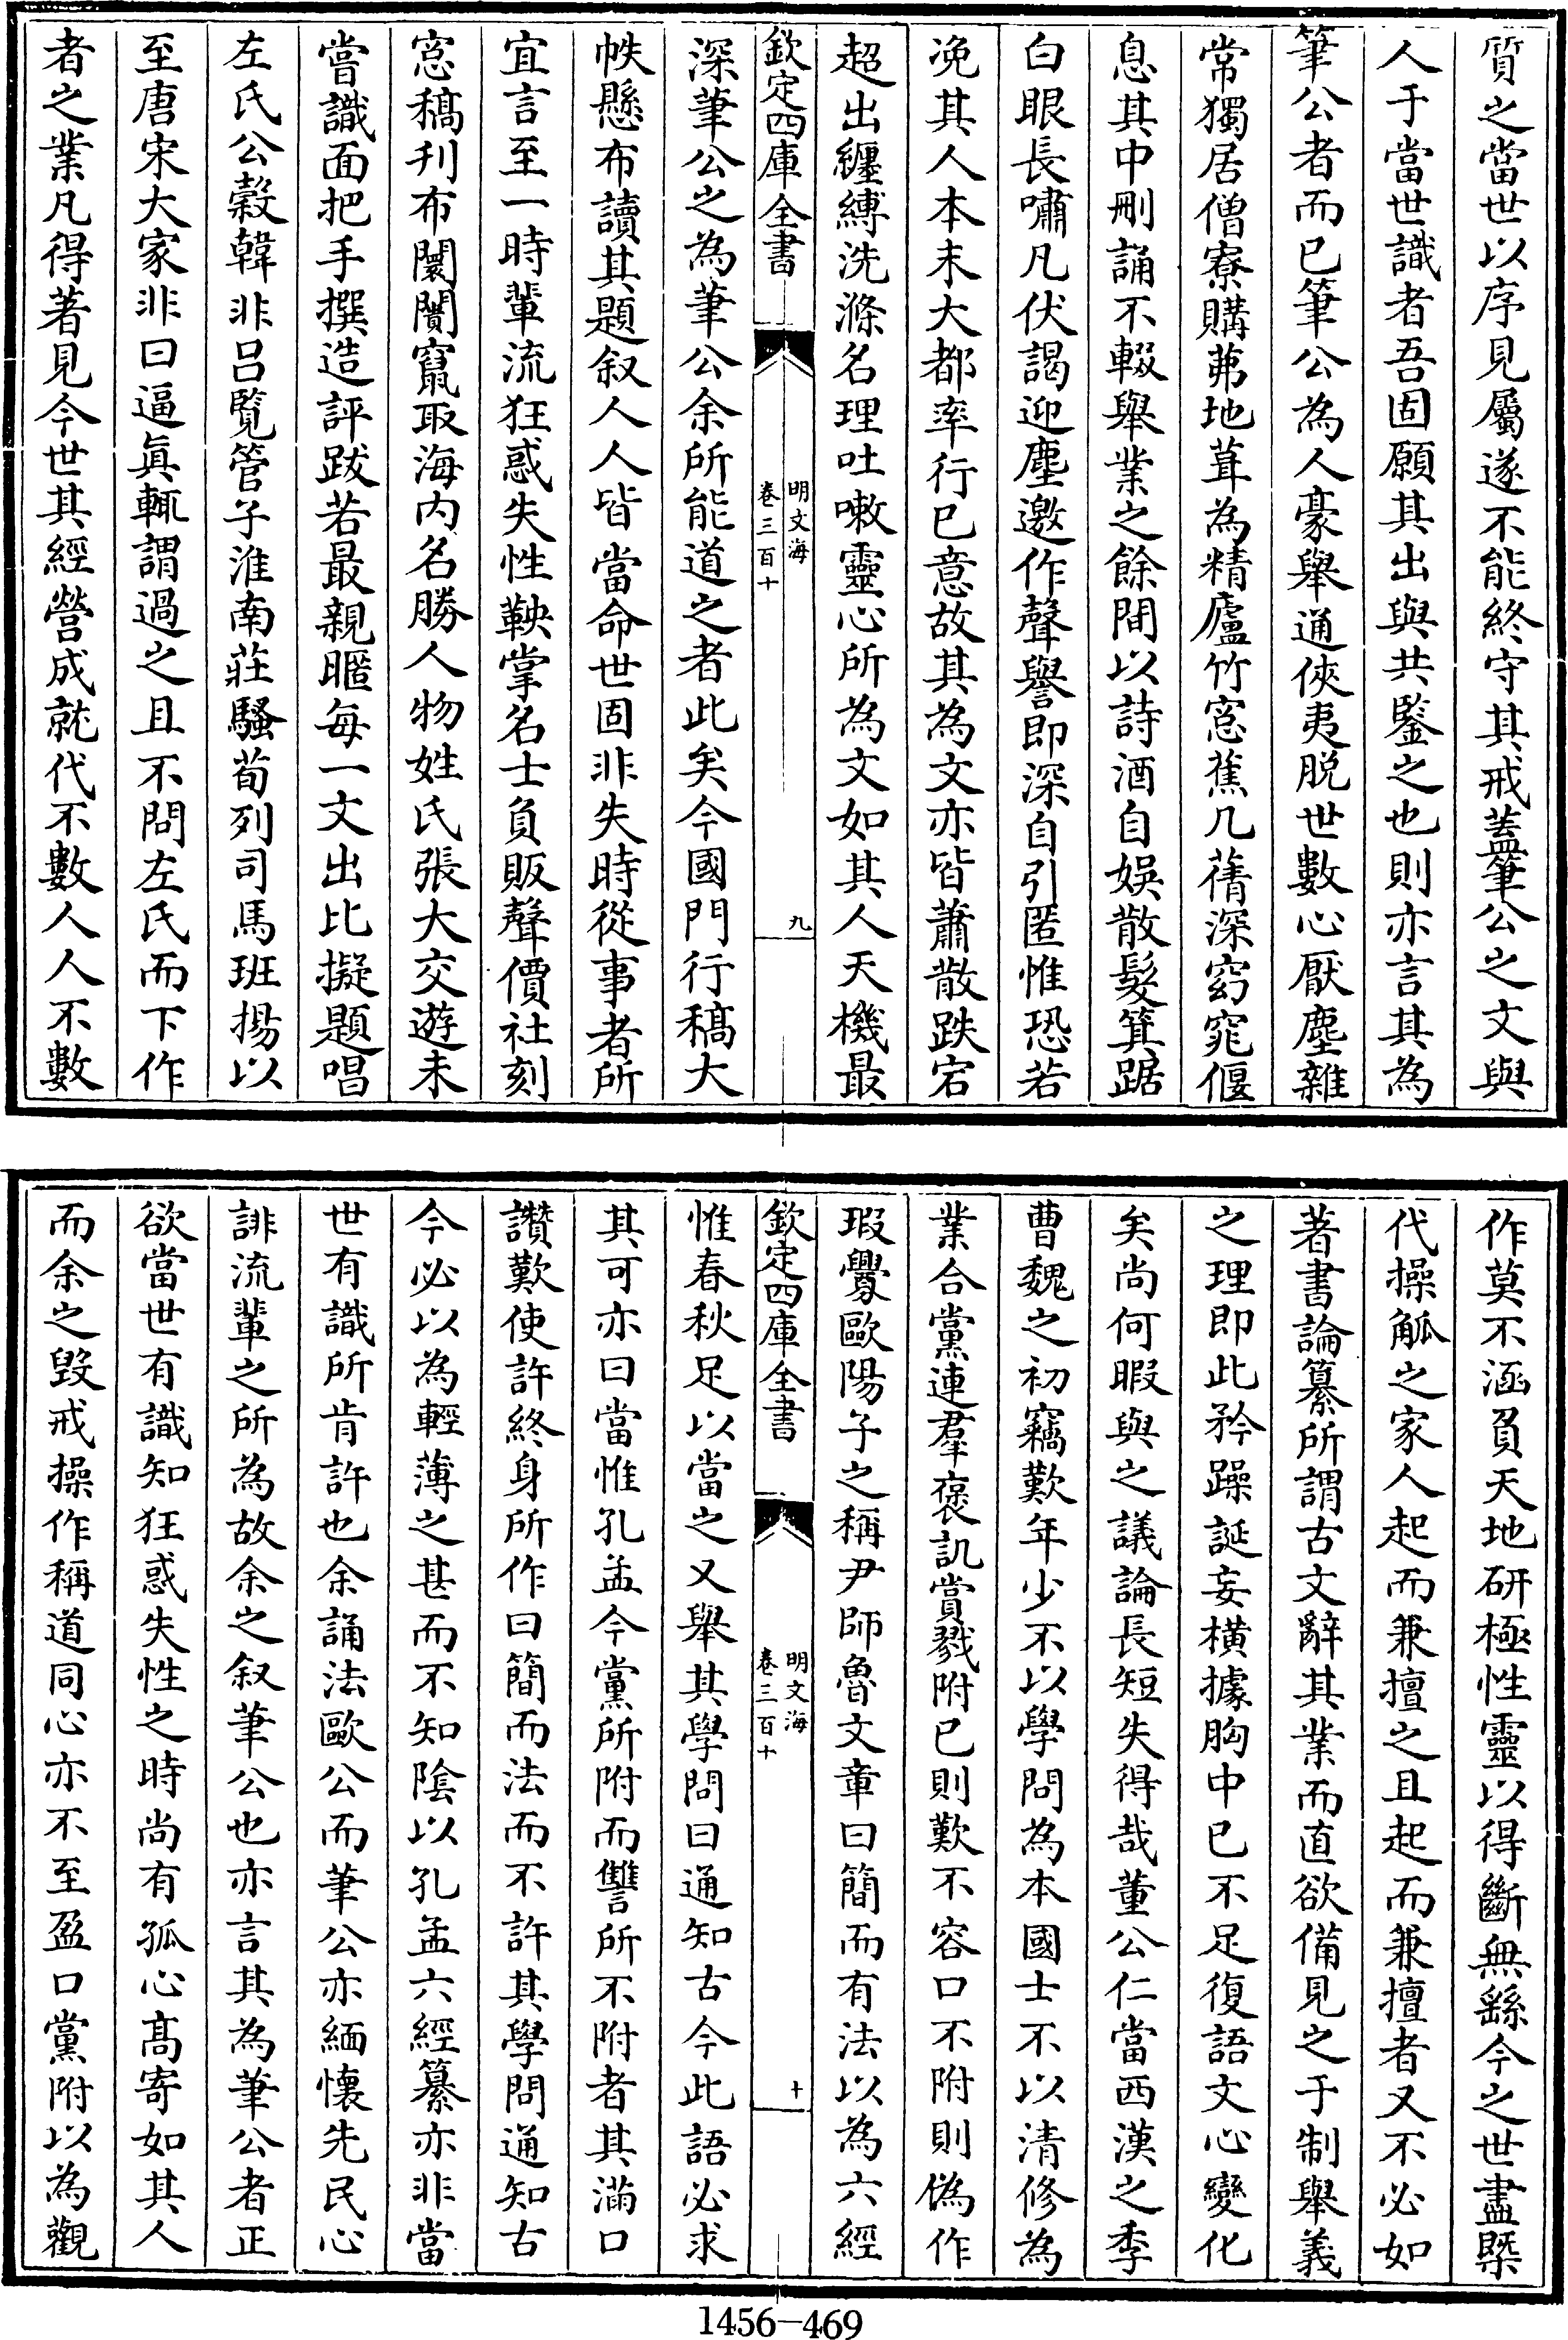 質之當世以序見屬遂不能終守其戒蓋筆公之文與
人于當世識者吾固願其出與共鑒之也則亦言其為
筆公者而已筆公為人豪舉通俠夷脱世數心厭塵雜
常獨居僧寮購茀地葺為精廬竹窓蕉几蒨深窈窕偃
息其中刪誦不輟舉業之餘間以詩酒自娱散髮箕踞
白眼長嘯凡伏謁迎塵邀作聲譽即深自引匿惟恐若
凂其人本末大都率行已意故其為文亦皆蕭散跌宕
超出纏縛洗滌名理吐嗽靈心所為文如其人天機最
欽定四庫全書
明文海
卷三百十
九
深筆公之為筆公余所能道之者此矣今國門行稿大
帙懸布讀其題叙人人皆當命世固非失時從事者所
宜言至一時輩流狂惑失性鞅掌名士負販聲價社刻
窓稿刋布闤闠竄取海内名勝人物姓氏張大交遊未
嘗識面把手撰造評跋若最親暱每一文出比擬題唱
左氏公榖韓非吕覽管子淮南莊騷荀列司馬班揚以
至唐宋大家非曰逼眞輒謂過之且不問左氏而下作
者之業凡得著見今世其經營成就代不數人人不數
作莫不涵負天地研極性靈以得斷無繇今之世盡槩
代操觚之家人起而兼擅之且起而兼擅者又不必如
著書論纂所謂古文辭其業而直欲備見之于制舉義
之理即此矜躁誕妄横據胸中已不足復語文心變化
矣尚何暇與之議論長短失得哉董公仁當西漢之季
曹魏之初竊歎年少不以學問為本國士不以清修為
業合黨連羣褒訊賞戮附已則歎不容口不附則偽作
瑕釁歐陽子之稱尹師魯文章曰簡而有法以為六經
欽定四庫全書
明文海
卷三百十
十
惟春秋足以當之又舉其學問曰通知古今此語必求
其可亦曰當惟孔孟今黨所附而讐所不附者其滿口
讚歎使許終身所作曰簡而法而不許其學問通知古
今必以為輕薄之甚而不知陰以孔孟六經纂亦非當
世有識所肯許也余誦法歐公而筆公亦緬懐先民心
誹流輩之所為故余之叙筆公也亦言其為筆公者正
欲當世有識知狂惑失性之時尚有孤心髙寄如其人
而余之毁戒操作稱道同心亦不至盈口黨附以為觀
1456—469